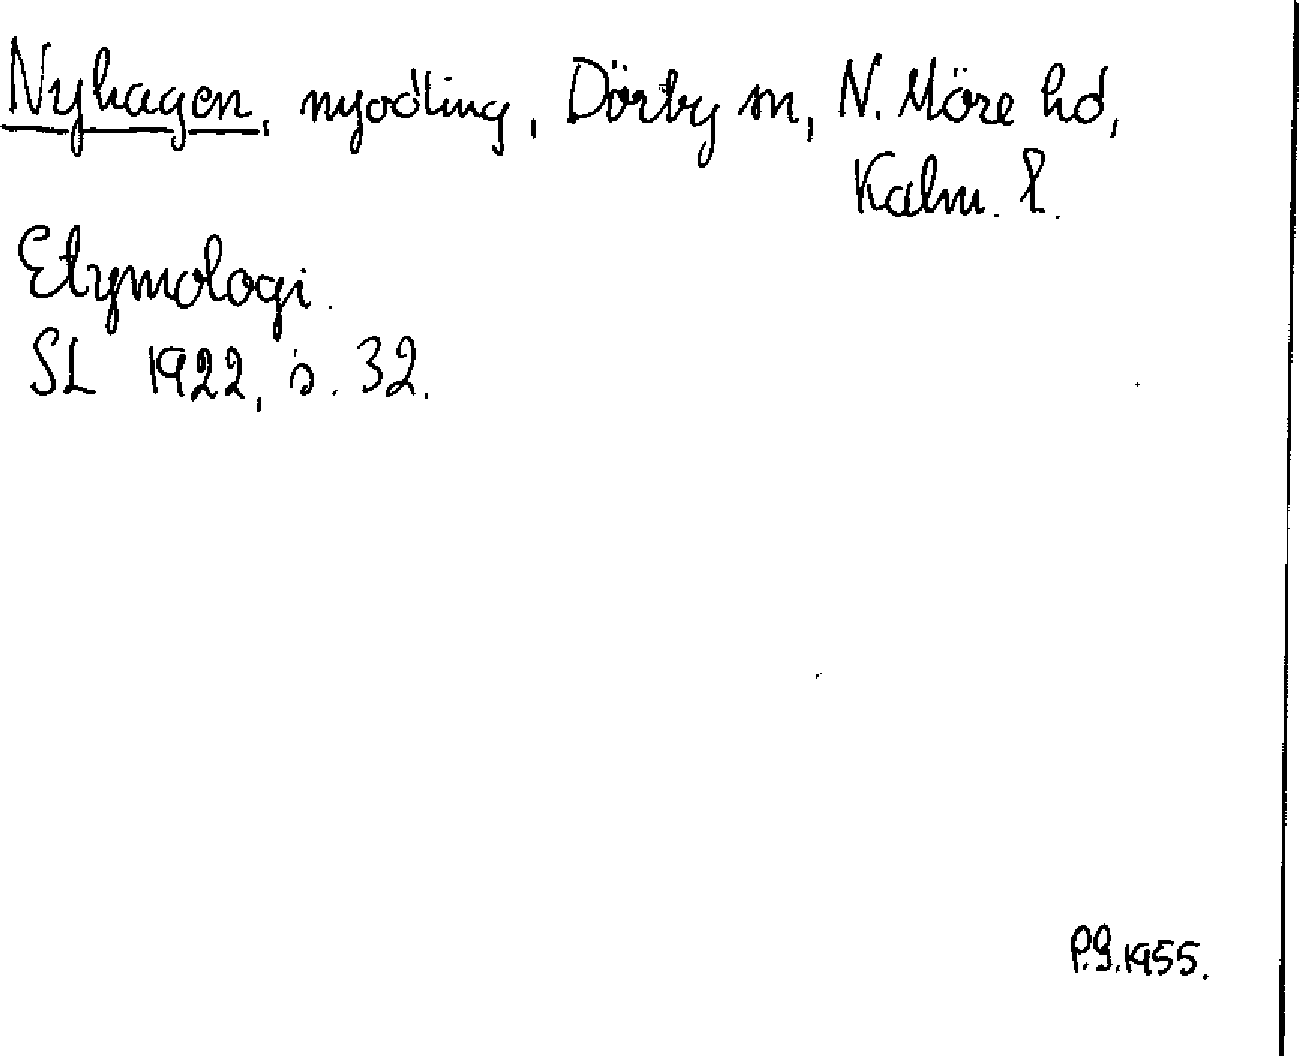 Nyhagen, nyodling, Dörby sn, N. Möre hd,
Kalm. l.
Etymologi.
SL 1922, s. 32.
P.G. 1955.